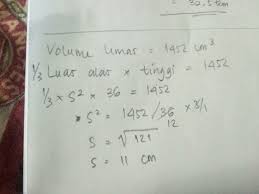 = 32,5 cm
Volume limas = 1452 cm³
1/3 Luas alas × tinggi = 1452
1/3 × S² × 36 = 1452
S² = 1452/36 × 3/1
12
S = √121
S = 11 cm